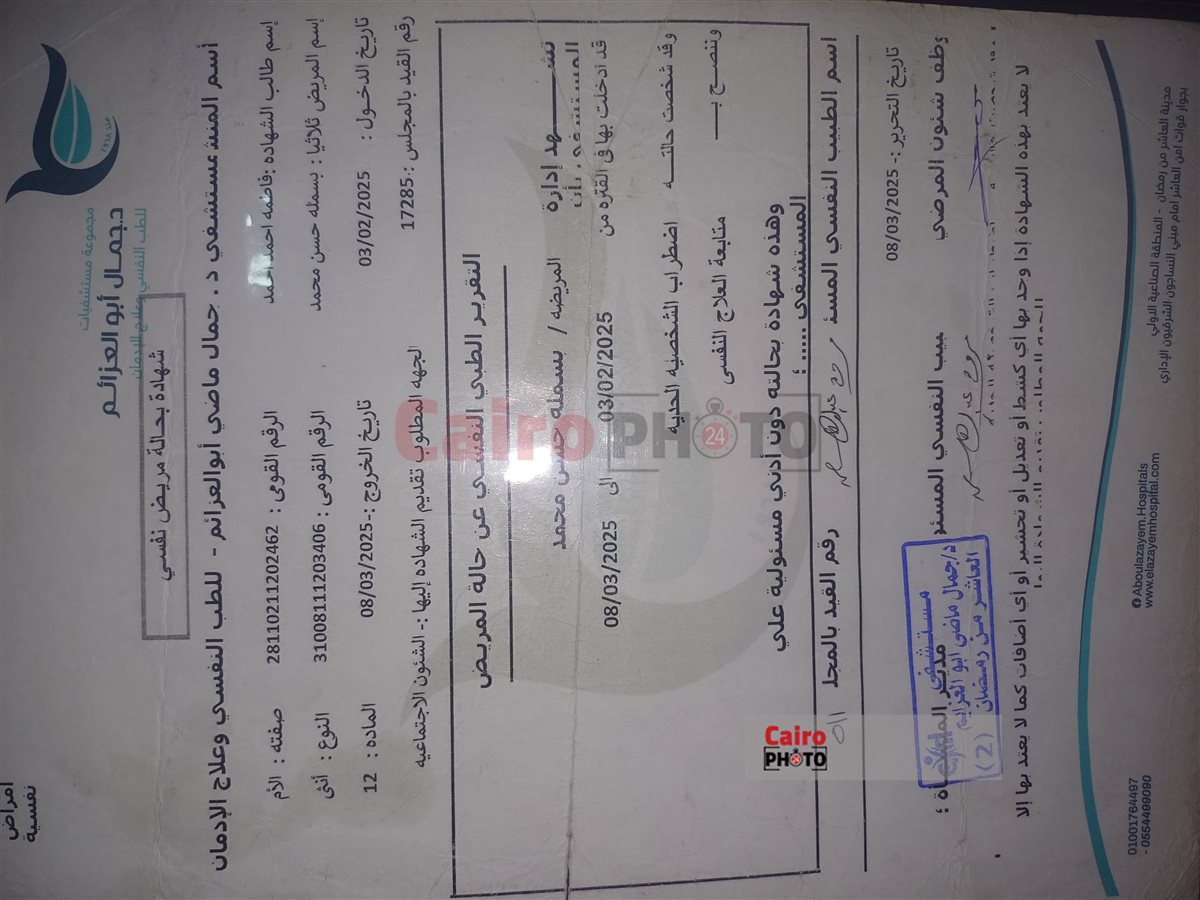 امراض
نفسية
مجموعة مستشفيات
د.جمال أبو العزائم
للطب النفسي وعلاج الإدمان
شهادة بحالة مريض نفسي
أسم المنشستشفي د . جمال ماضي أبوالعزائم - للطب النفسي وعلاج الإدمان
إسم طالب الشهاده :فاطمه احمد احمد الرقم القومى : 28110211202462 صفته : الأم
إسم المريض ثلاثيا : بسمله حسن محمد الرقم القومى : 31008111203406 النوع : أنثى
تاريخ الدخول : 03/02/2025 تاريخ الخروج :-08/03/2025 الماده : 12
رقم القيد بالمجلس :-17285 الجهه المطلوب تقديم الشهاده إليها :- الشئون الاجتماعيه
التقرير الطبي النفسي عن حالة المريض
تشــهد إدارة المستشفى بأن المريضه / بسمله حسن محمد
قد ادخلت بها فى الفتره من 03/02/2025 الى 08/03/2025
وقد شخصت حالتـــه اضطراب الشخصيه الحديه
وننصح بــ متابعة العلاج النفسى
وهذه شهادة بحالته دون أدني مسئولية علي
المستشفى ..... ؛
اسم الطبيب النفسي المسئ رقم القيد بالمجلد 011
تاريخ التحرير :- 08/03/2025
وظف شئون المرضي بيب النفسي المسئد مدير المنشأة :
مستشفى
د/جمال ماضي ابو العزايم
العاشر من رمضان
(2)
لا يعتد بهذه الشهادة إذا وجد بها أي كشط أو تعديل أو تحشير أو أي أضافات كما لا يعتد بها إلا
مدينة العاشر من رمضان - المنطقة الصناعية الاولي
بجوار قوات امن العاشر امام مبني النساجون الشرقيون الإداري
Aboulazayem.Hospitals
www.elazayemhospital.com
01001764497
- 0554499090
Cairo PHOTO 24
Cairo
PHOTO